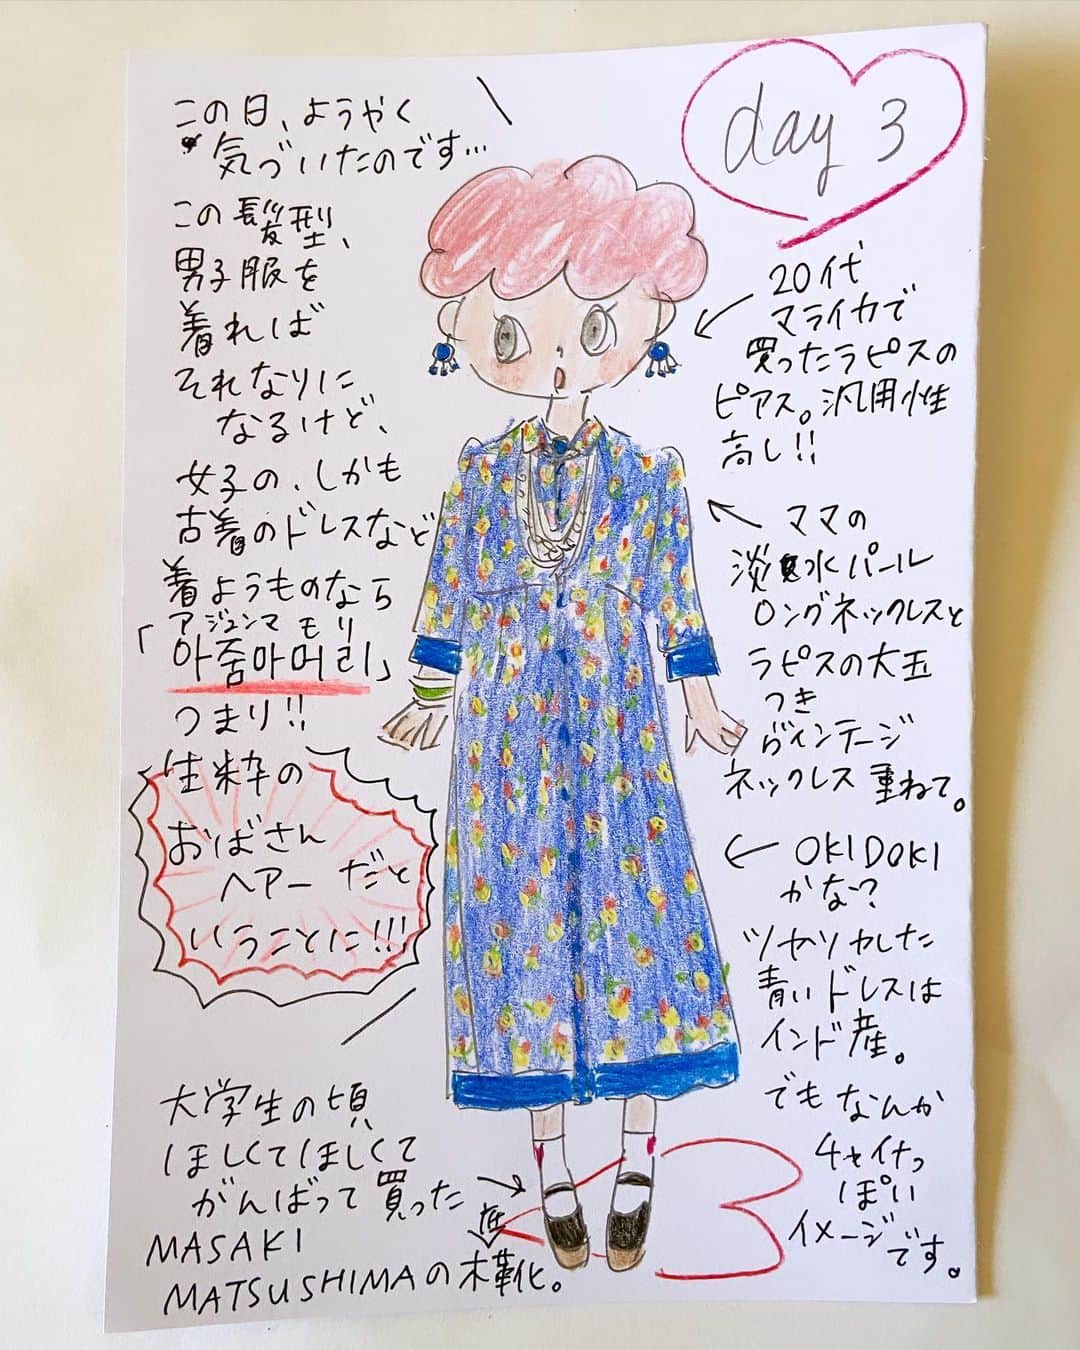 day 3
この日、ようやく
気づいたのです…
この髪型、
男子服を
着れば
それなりに
なるけど、
女子の、しかも
古着のドレスなど
着ようものなら
アジュンマ モリ
「아줌마머리」
つまり!!
生粋の
おばさん
ヘアーだと
いうことに!!!
大学生の頃
ほしくてほしくて
がんばって買った
MASAKI
MATSUSHIMAの木靴。
底
20代
マライカで
買ったラピスの
ピアス。汎用性
高し!!
ママの
淡水パール
ロングネックレスと
ラピスの大玉
つき
ヴィンテージ
ネックレス重ねて。
OKIDOKI
かな?
ツヤツヤした
青いドレスは
インド産。
でもなんか
チャイナっ
ぽい
イメージ
です。